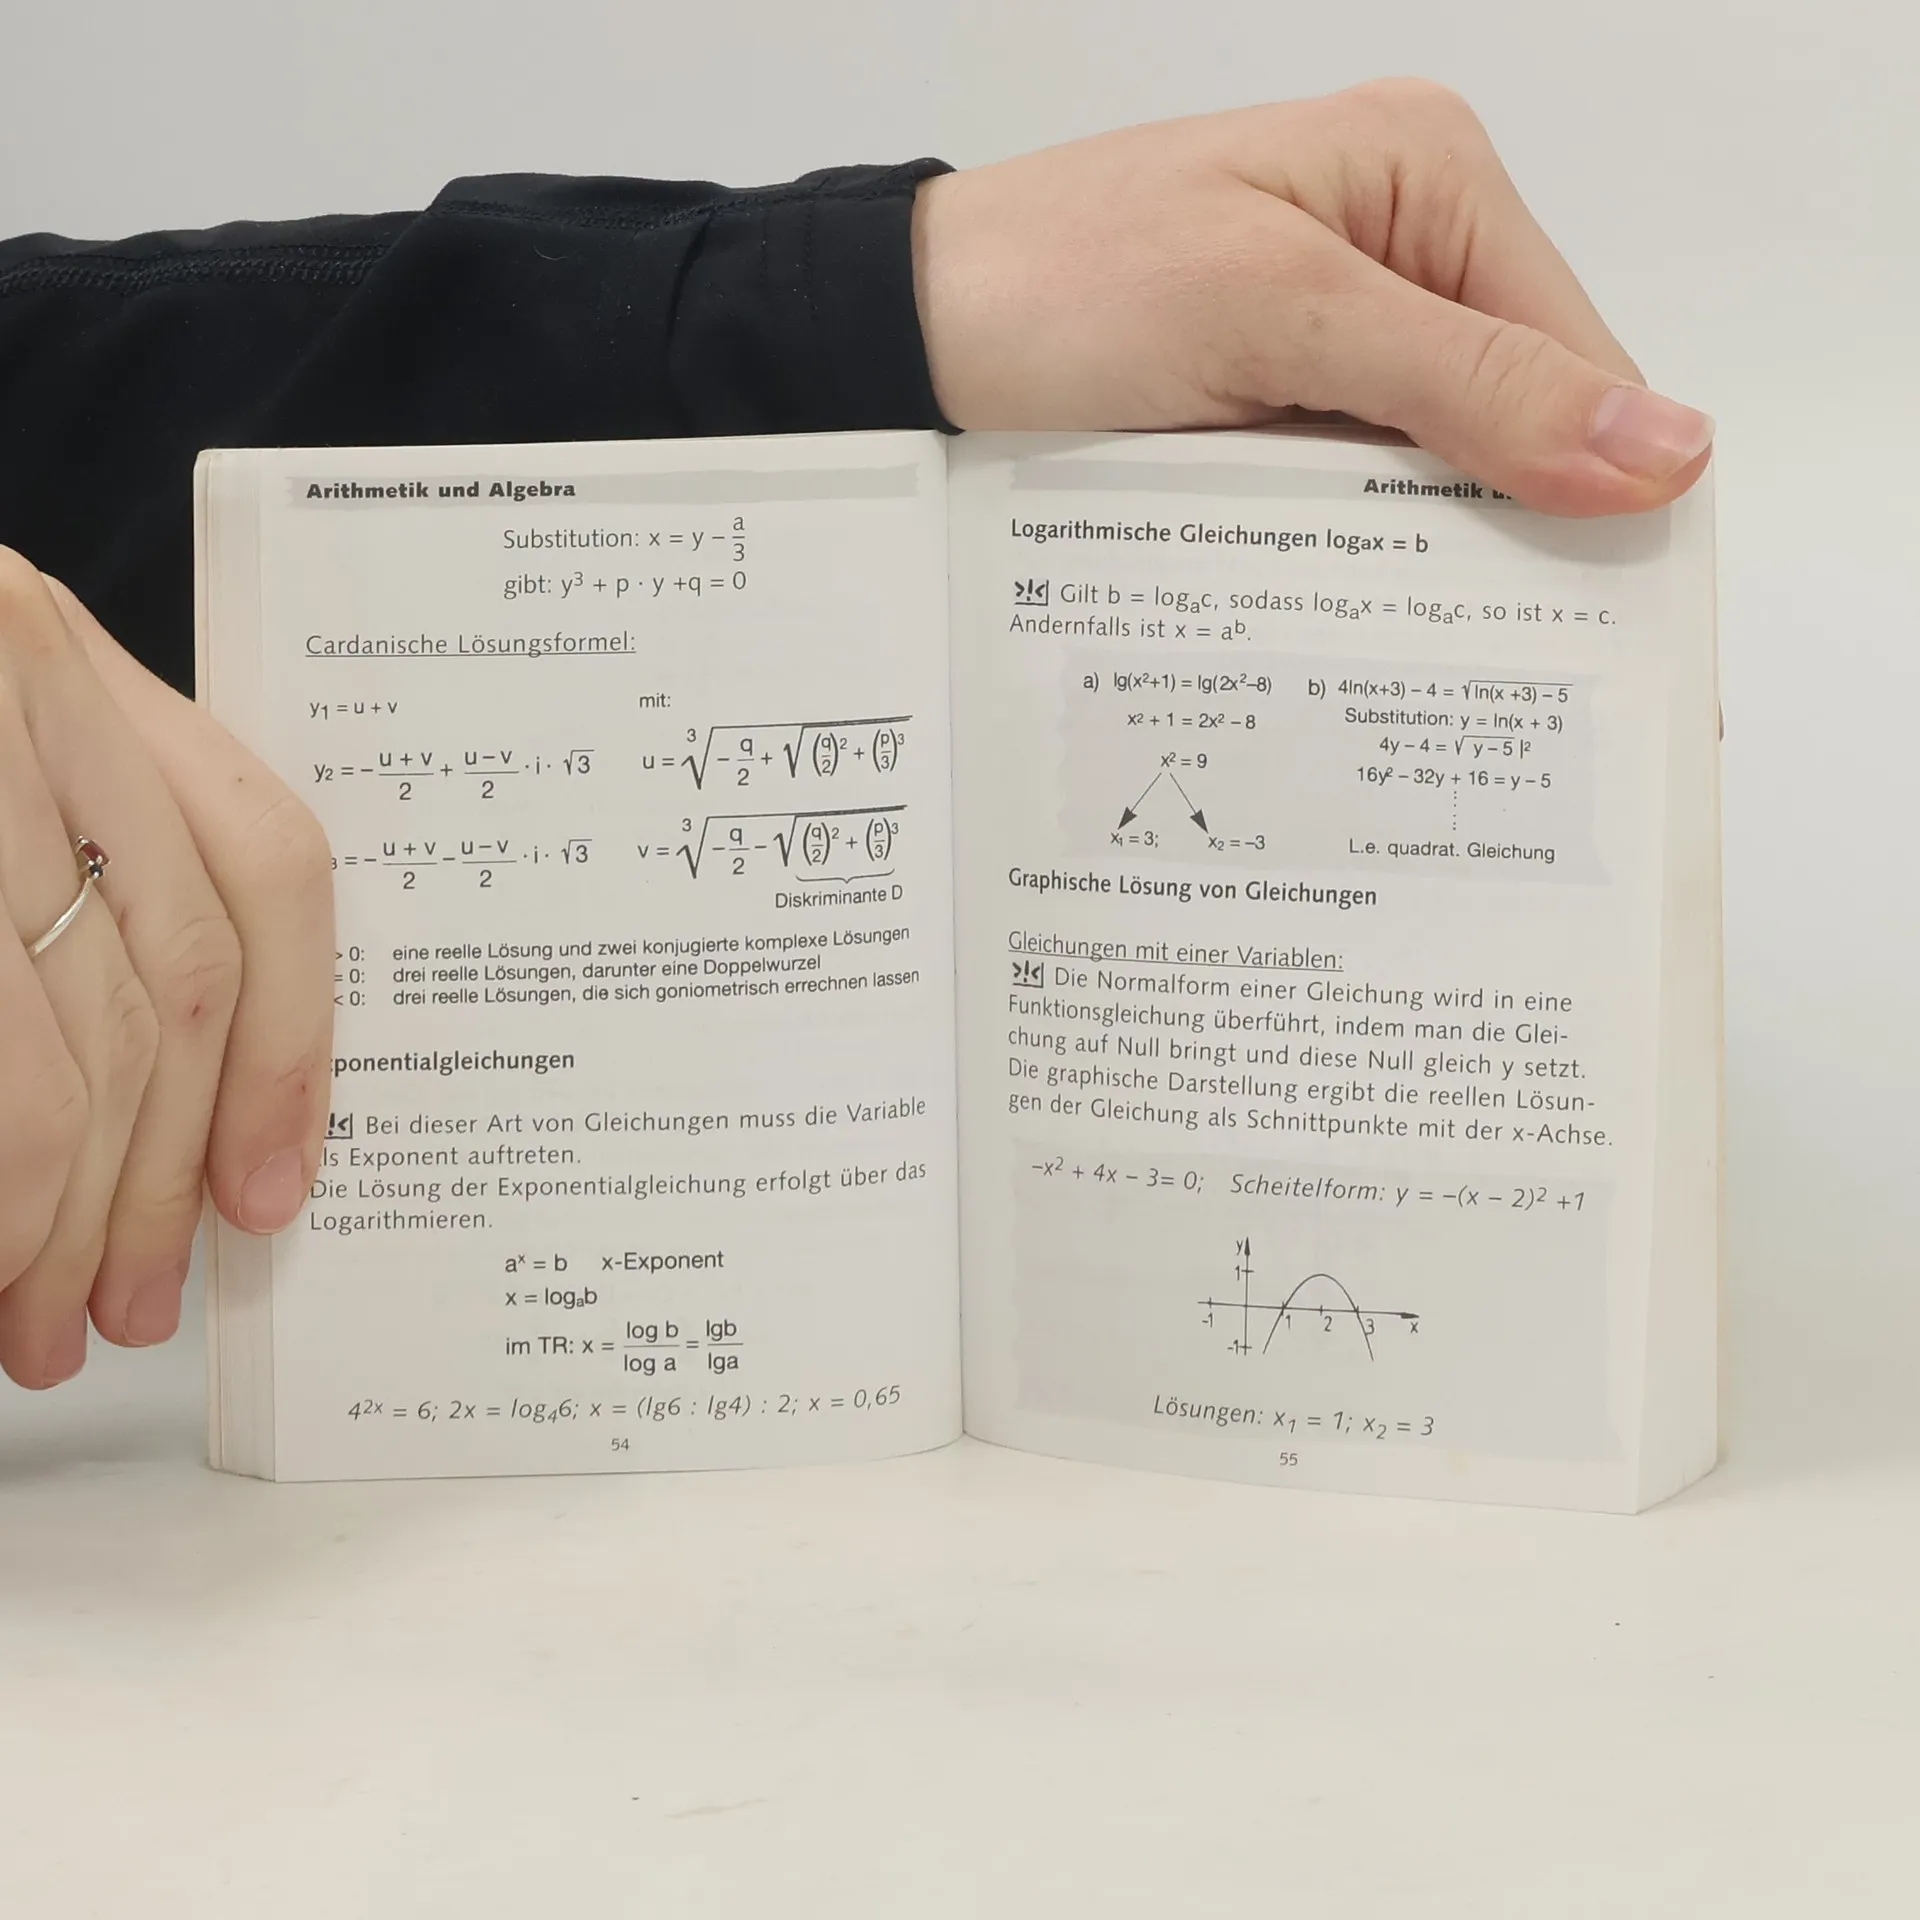 Arithmetik und Algebra
Substitution: x = y − a/3
gibt: y³ + p · y +q = 0
Cardanische Lösungsformel:
y₁ = u + v
mit:
y₂ = − (u + v)/2 + (u−v)/2 · i · √3
u = ³√(−q/2 + √((q/2)² + (p/3)³))
= − (u + v)/2 − (u−v)/2 · i · √3
v = ³√(−q/2 − √((q/2)² + (p/3)³))
Diskriminante D
> 0: eine reelle Lösung und zwei konjugierte komplexe Lösungen
= 0: drei reelle Lösungen, darunter eine Doppelwurzel
< 0: drei reelle Lösungen, die sich goniometrisch errechnen lassen
ponentialgleichungen
!< Bei dieser Art von Gleichungen muss die Variable
ls Exponent auftreten.
Die Lösung der Exponentialgleichung erfolgt über das
Logarithmieren.
aˣ = b x-Exponent
x = logₐb
im TR: x = log b/log a = lgb/lga
4²ˣ = 6; 2x = log₄6; x = (lg6 : lg4) : 2; x = 0,65
54
Arithmetik
Logarithmische Gleichungen logax = b
>!< Gilt b = logₐc, sodass logₐx = logₐc, so ist x = c.
Andernfalls ist x = aᵇ.
a) lg(x²+1) = lg(2x²–8)
x² + 1 = 2x² – 8
x² = 9
x₁ = 3; x₂ = –3
b) 4ln(x+3) – 4 = √(ln(x +3) – 5)
Substitution: y = ln(x + 3)
4y – 4 = √(y – 5) |²
16y² – 32y + 16 = y – 5
L.e. quadrat. Gleichung
Graphische Lösung von Gleichungen
Gleichungen mit einer Variablen:
>!< Die Normalform einer Gleichung wird in eine
Funktionsgleichung überführt, indem man die Glei-
chung auf Null bringt und diese Null gleich y setzt.
Die graphische Darstellung ergibt die reellen Lösun-
gen der Gleichung als Schnittpunkte mit der x-Achse.
–x² + 4x – 3= 0; Scheitelform: y = –(x – 2)² +1
y
1
-1 1 2 3 x
-1
Lösungen: x₁ = 1; x₂ = 3
55